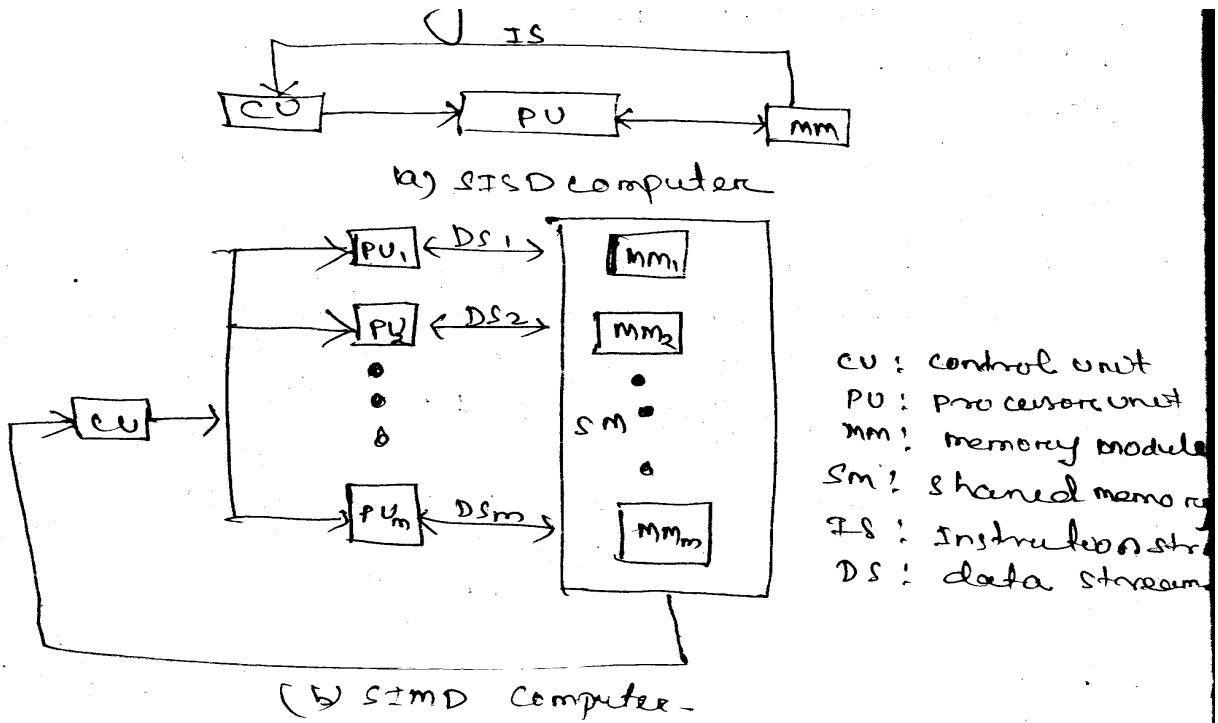 IS
CU PU MM
(a) SISD computer
PU1 DS1 MM1
PU2 DS2 MM2
CU SM
PUm DSm MMm
CU : control unit
PU : processor unit
MM : memory module
SM : shared memory
IS : Instruction str
DS : data stream
(b) SIMD Computer-